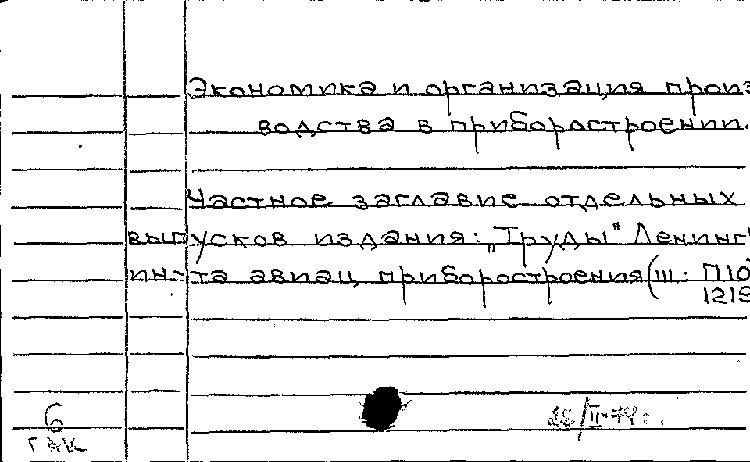 Экономика и организация произ
водства в приборостроении.
Частное заглавие отдельных
выпусков издания: „Труды" Ленинг
ин-та авиац. приборостроения (Ш: П10
1219
6
ГАК